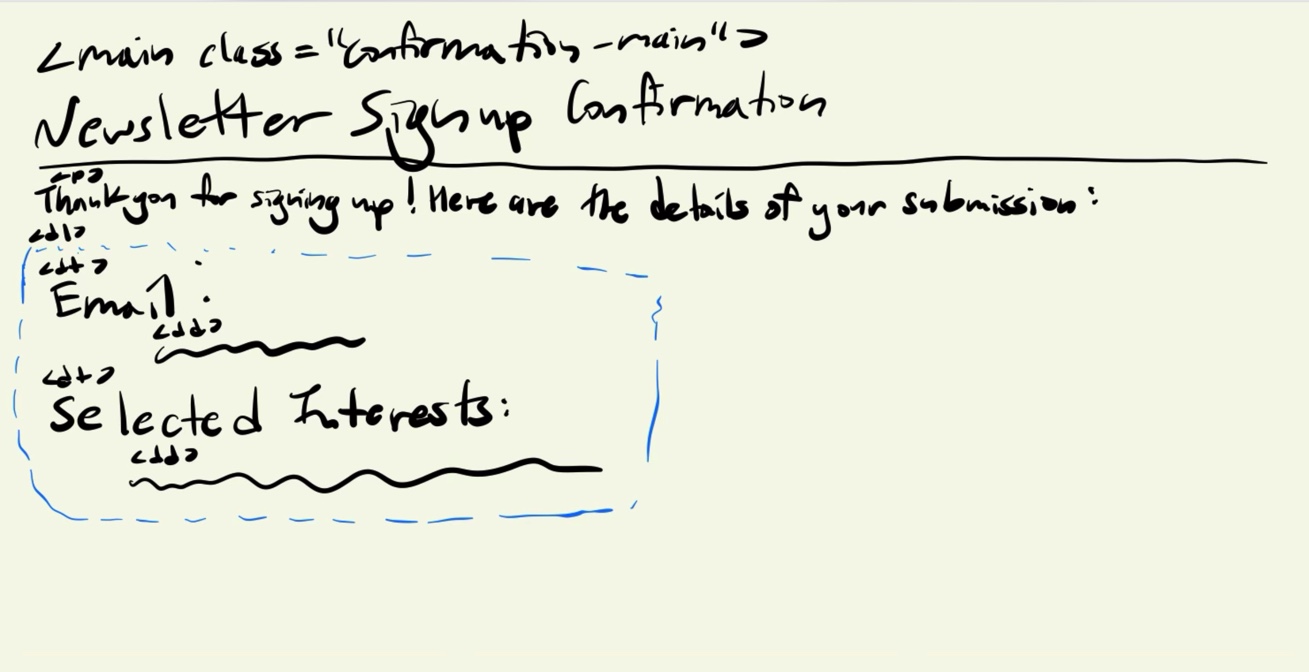 <main class="confirmation-main">
Newsletter Signup Confirmation
<p>
Thank you for signing up! Here are the details of your submission:
<dl>
<dt>
Email:
<dd>
<dt>
Selected Interests:
<dd>